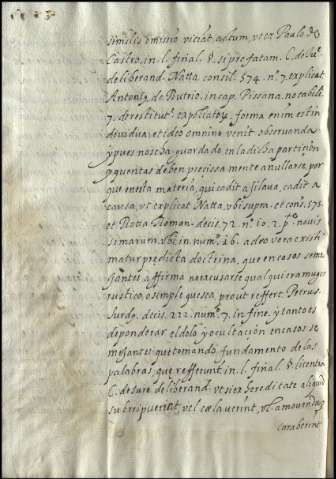 similis omisio viciat actum, ut ex Paulo de
Castro, in l. final. §. si præfatam. C. de Iu.e
deliberand. Natta, consil. 574. n.º 7. explicat
Anton.º de Butrio, in cap. Pissana,
7. de restitut. expoliator, forma enim est in
dividua, et ideo omnino venit observanda
y pues no se ha guardado en la dicha particion
y quentas deben precissamente anullarse, por
que en esta materia, qui cadit a silava, cadit a
causa, ut explicat Natta, ubi supra. et cons. 571.
et Rotta Roman. decis. 72. n.º 10. 2. p.e novis
simarum, ubi in num.º 16. adeo vera cristi
matur predicta doctrina, que en casos seme
jantes affirma no escusarse qualquiera muger
rustico, o simple que sea, prout reffert Petrus
Surdo, decis. 222. num.º 7. in fine. y tanto es
de ponderar el dolo, y ocultacion en casos se
mejantes que tomando fundamento de las
palabras, que refferunt in l. final. §. licentia
C. de Iure deliberand. ut si ex hereditate aliquid
surripuerint, vel celaverint, vl. amovendu
curaberint